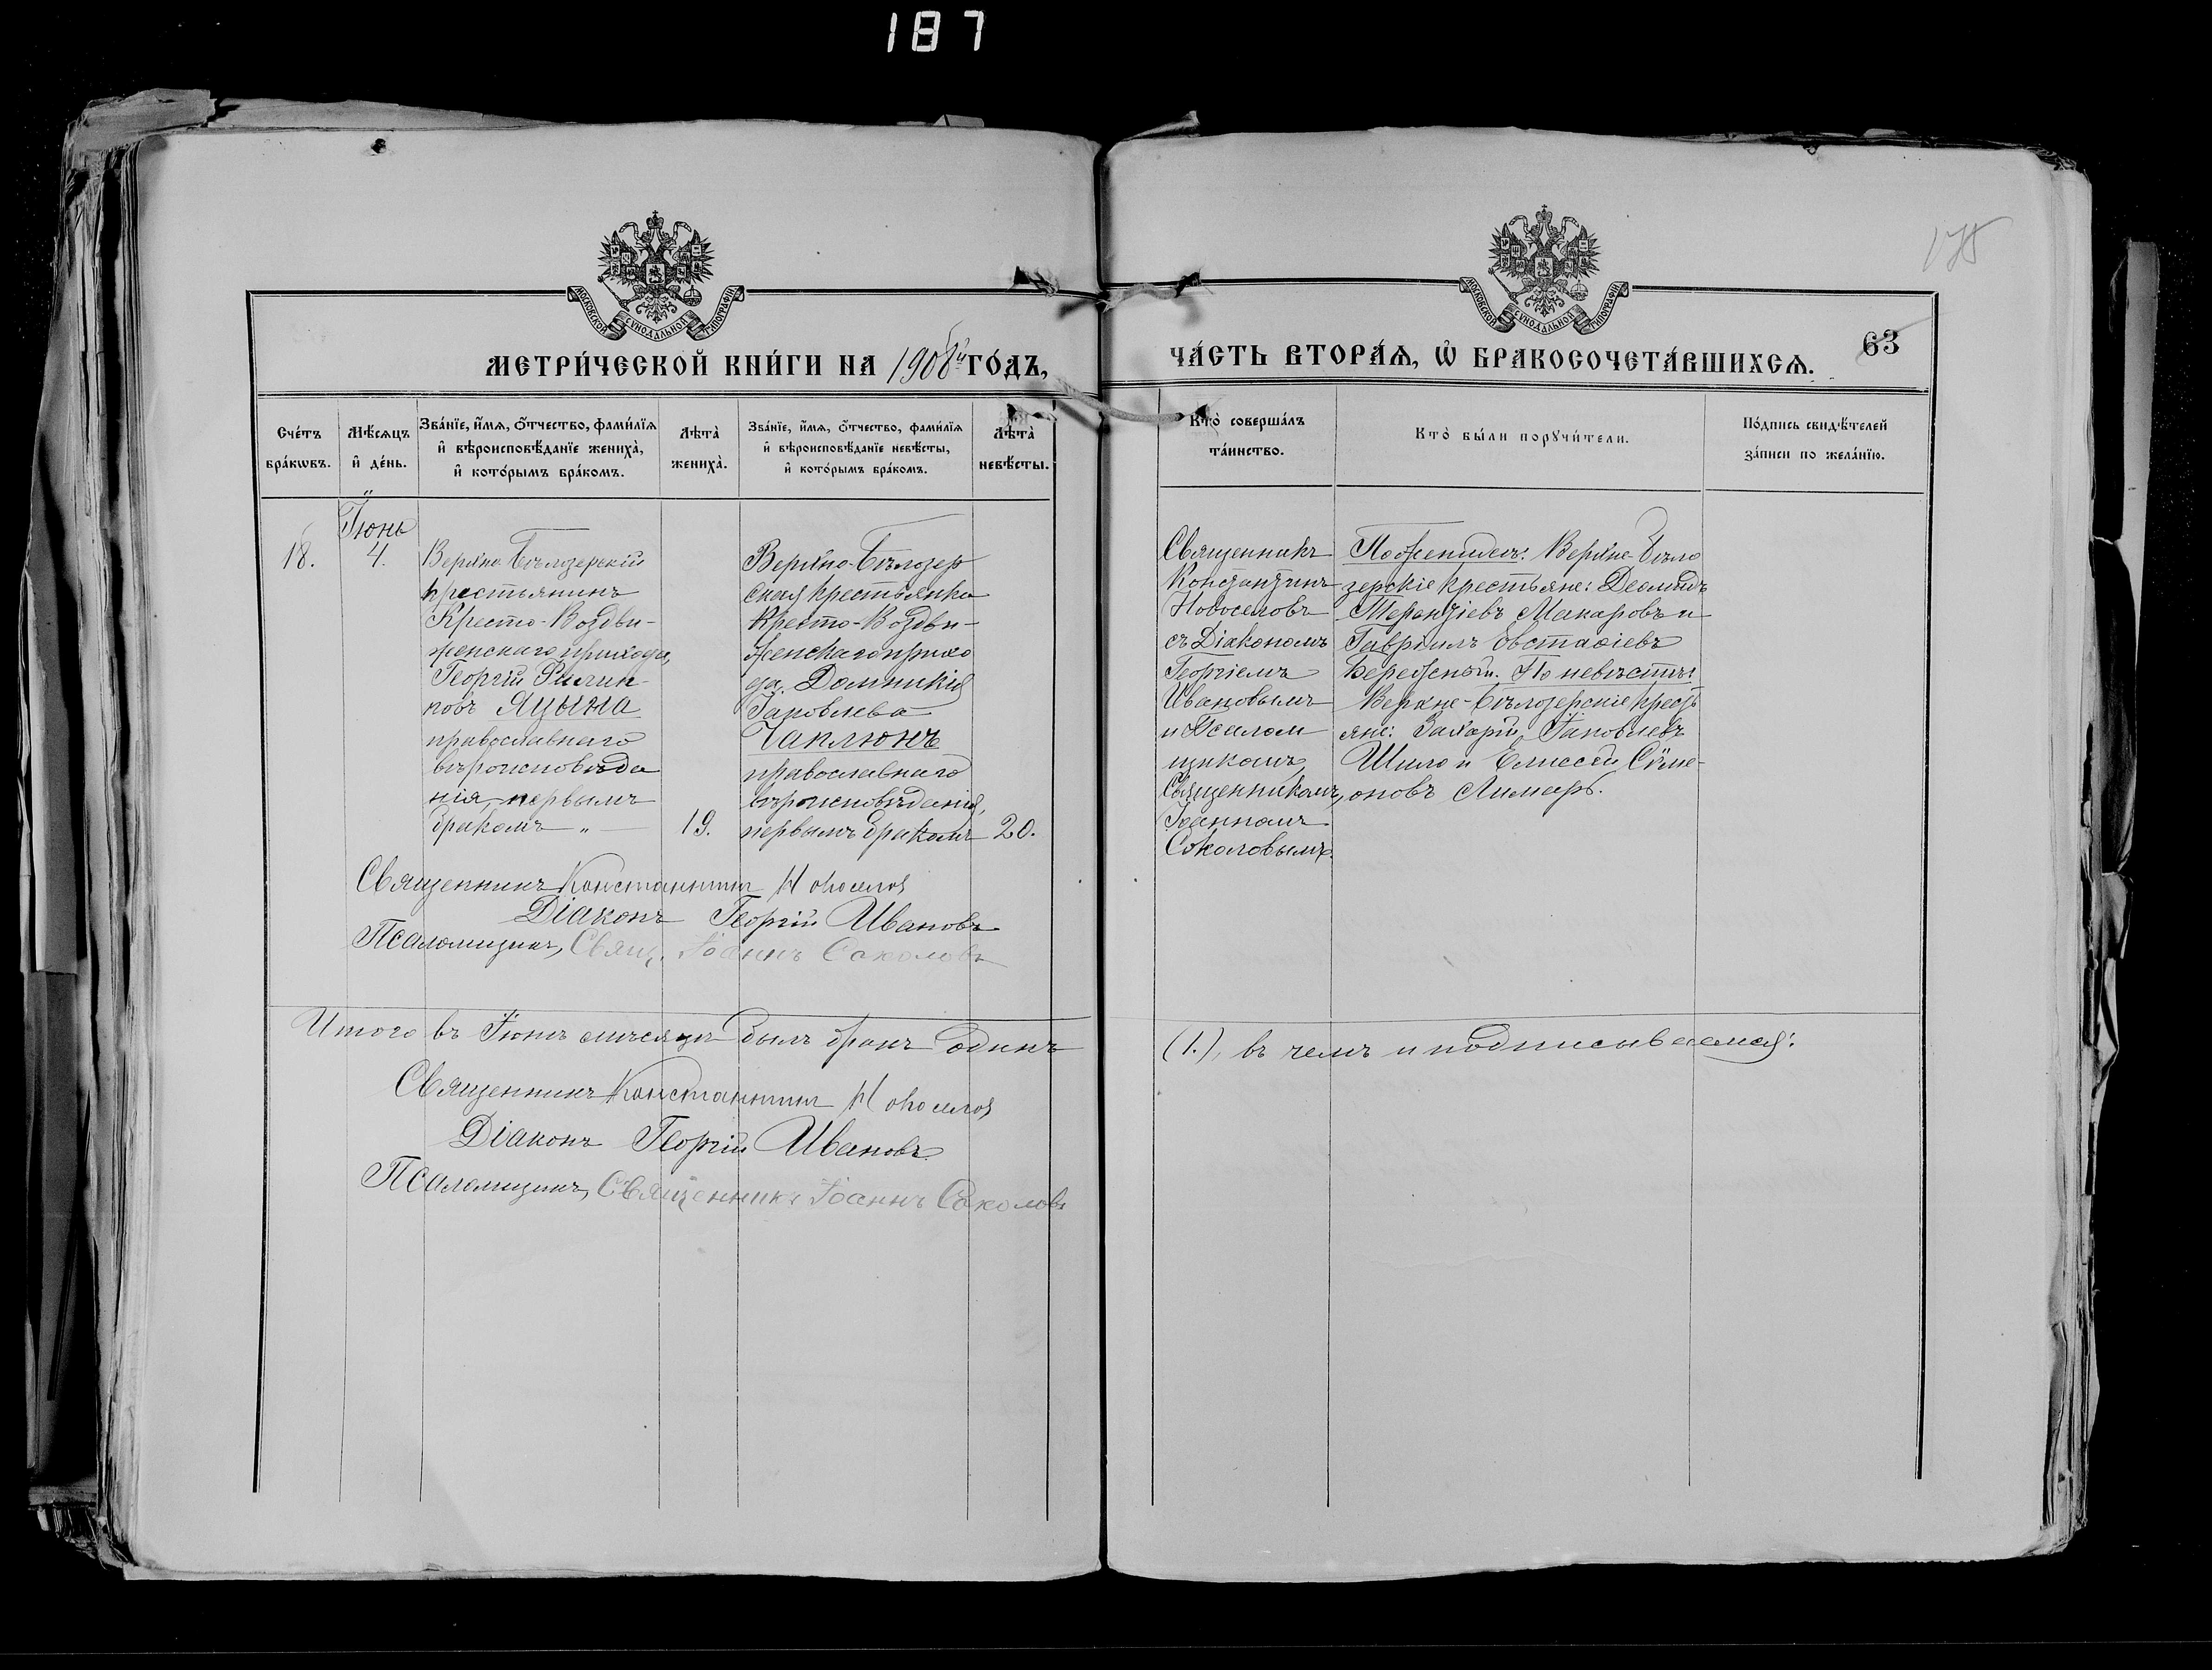 187
175
МОСКОВСКОЙ СѴНОДАЛЬНОЙ ТИПОГРАФІИ
МОСКОВСКОЙ СѴНОДАЛЬНОЙ ТИПОГРАФІИ
МЕТРИ́ЧЕСКОЙ КНИ́ГИ НА 1908й ГО́ДЪ,
ЧА́СТЬ ВТОРА́Ѧ, Ѡ҆ БРАКОСОЧЕТА́ВШИХСѦ.
63
Сче́тъ бра́кѡвъ.
Мѣ́сѧцъ и҆ де́нь.
Зва́нїе, и҆́мѧ, ѻ҆́тчество, фами́лїѧ и҆ вѣроисповѣ́данїе жениха̀, и҆ кото́рымъ бра́комъ.
Лѣта̀ жениха̀.
Зва́нїе, и҆́мѧ, ѻ҆́тчество, фами́лїѧ и҆ вѣроисповѣ́данїе невѣ́сты, и҆ кото́рымъ бра́комъ.
Лѣта̀ невѣ́сты.
Кто̀ соверша́лъ та́инство.
Кто̀ бы́ли порꙋчи́тели.
По́дпись свидѣ́телей за́писи по жела́нїю.
18.
Іюнь
4.
Верхне-Бѣлозерскій
крестьянинъ
Кресто-Воздви-
женскаго прихода,
Георгій Филип-
повъ Яцына
православнаго
вѣроисповѣда
нія, первымъ
бракомъ „ —
19.
Верхне-Бѣлозер
ская крестьянка
Кресто-Воздви-
женскаго прихо
да, Домникія
Іаковлева
Чаплюнъ
православнаго
вѣроисповѣданія,
первымъ бракомъ
20.
Священникъ
Константинъ
Новоселовъ
съ Діакономъ
Георгіемъ
Ивановымъ
и Псалом
щикомъ,
Священникомъ,
Іоанномъ
Соколовымъ.
По женихѣ: Верхне-Бѣло
зерскіе крестьяне: Деомидъ
Терентіевъ Макаровъ и
Гавріилъ Евстафіевъ
Бережный. По невѣстѣ:
Верхне-Бѣлозерскіе крестъ
яне: Захарій Іаковлевъ
Шило и Елиссей Сѵме-
оновъ Лимарь.
Священникъ Константинъ Новоселов
Діаконъ Георгій Ивановъ
Псаломщикъ, Свящ. Іоаннъ Соколовъ
Итого въ Іюнѣ мѣсяцѣ былъ бракъ одинъ
(1.), въ чемъ и подписываемся:
Священникъ Константинъ Новоселов
Діаконъ Георгій Ивановъ
Псаломщикъ, Священникъ Іоаннъ Соколовъ